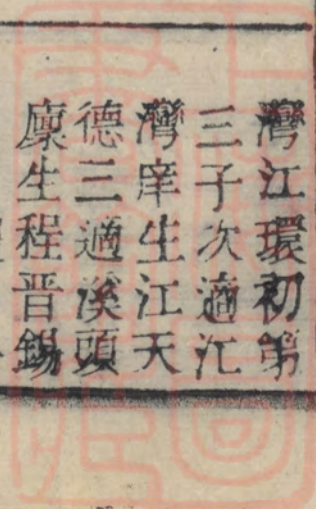 灣江環初第
三子次適江
灣庠生江天
德三適溪頭
廩生程晋錫